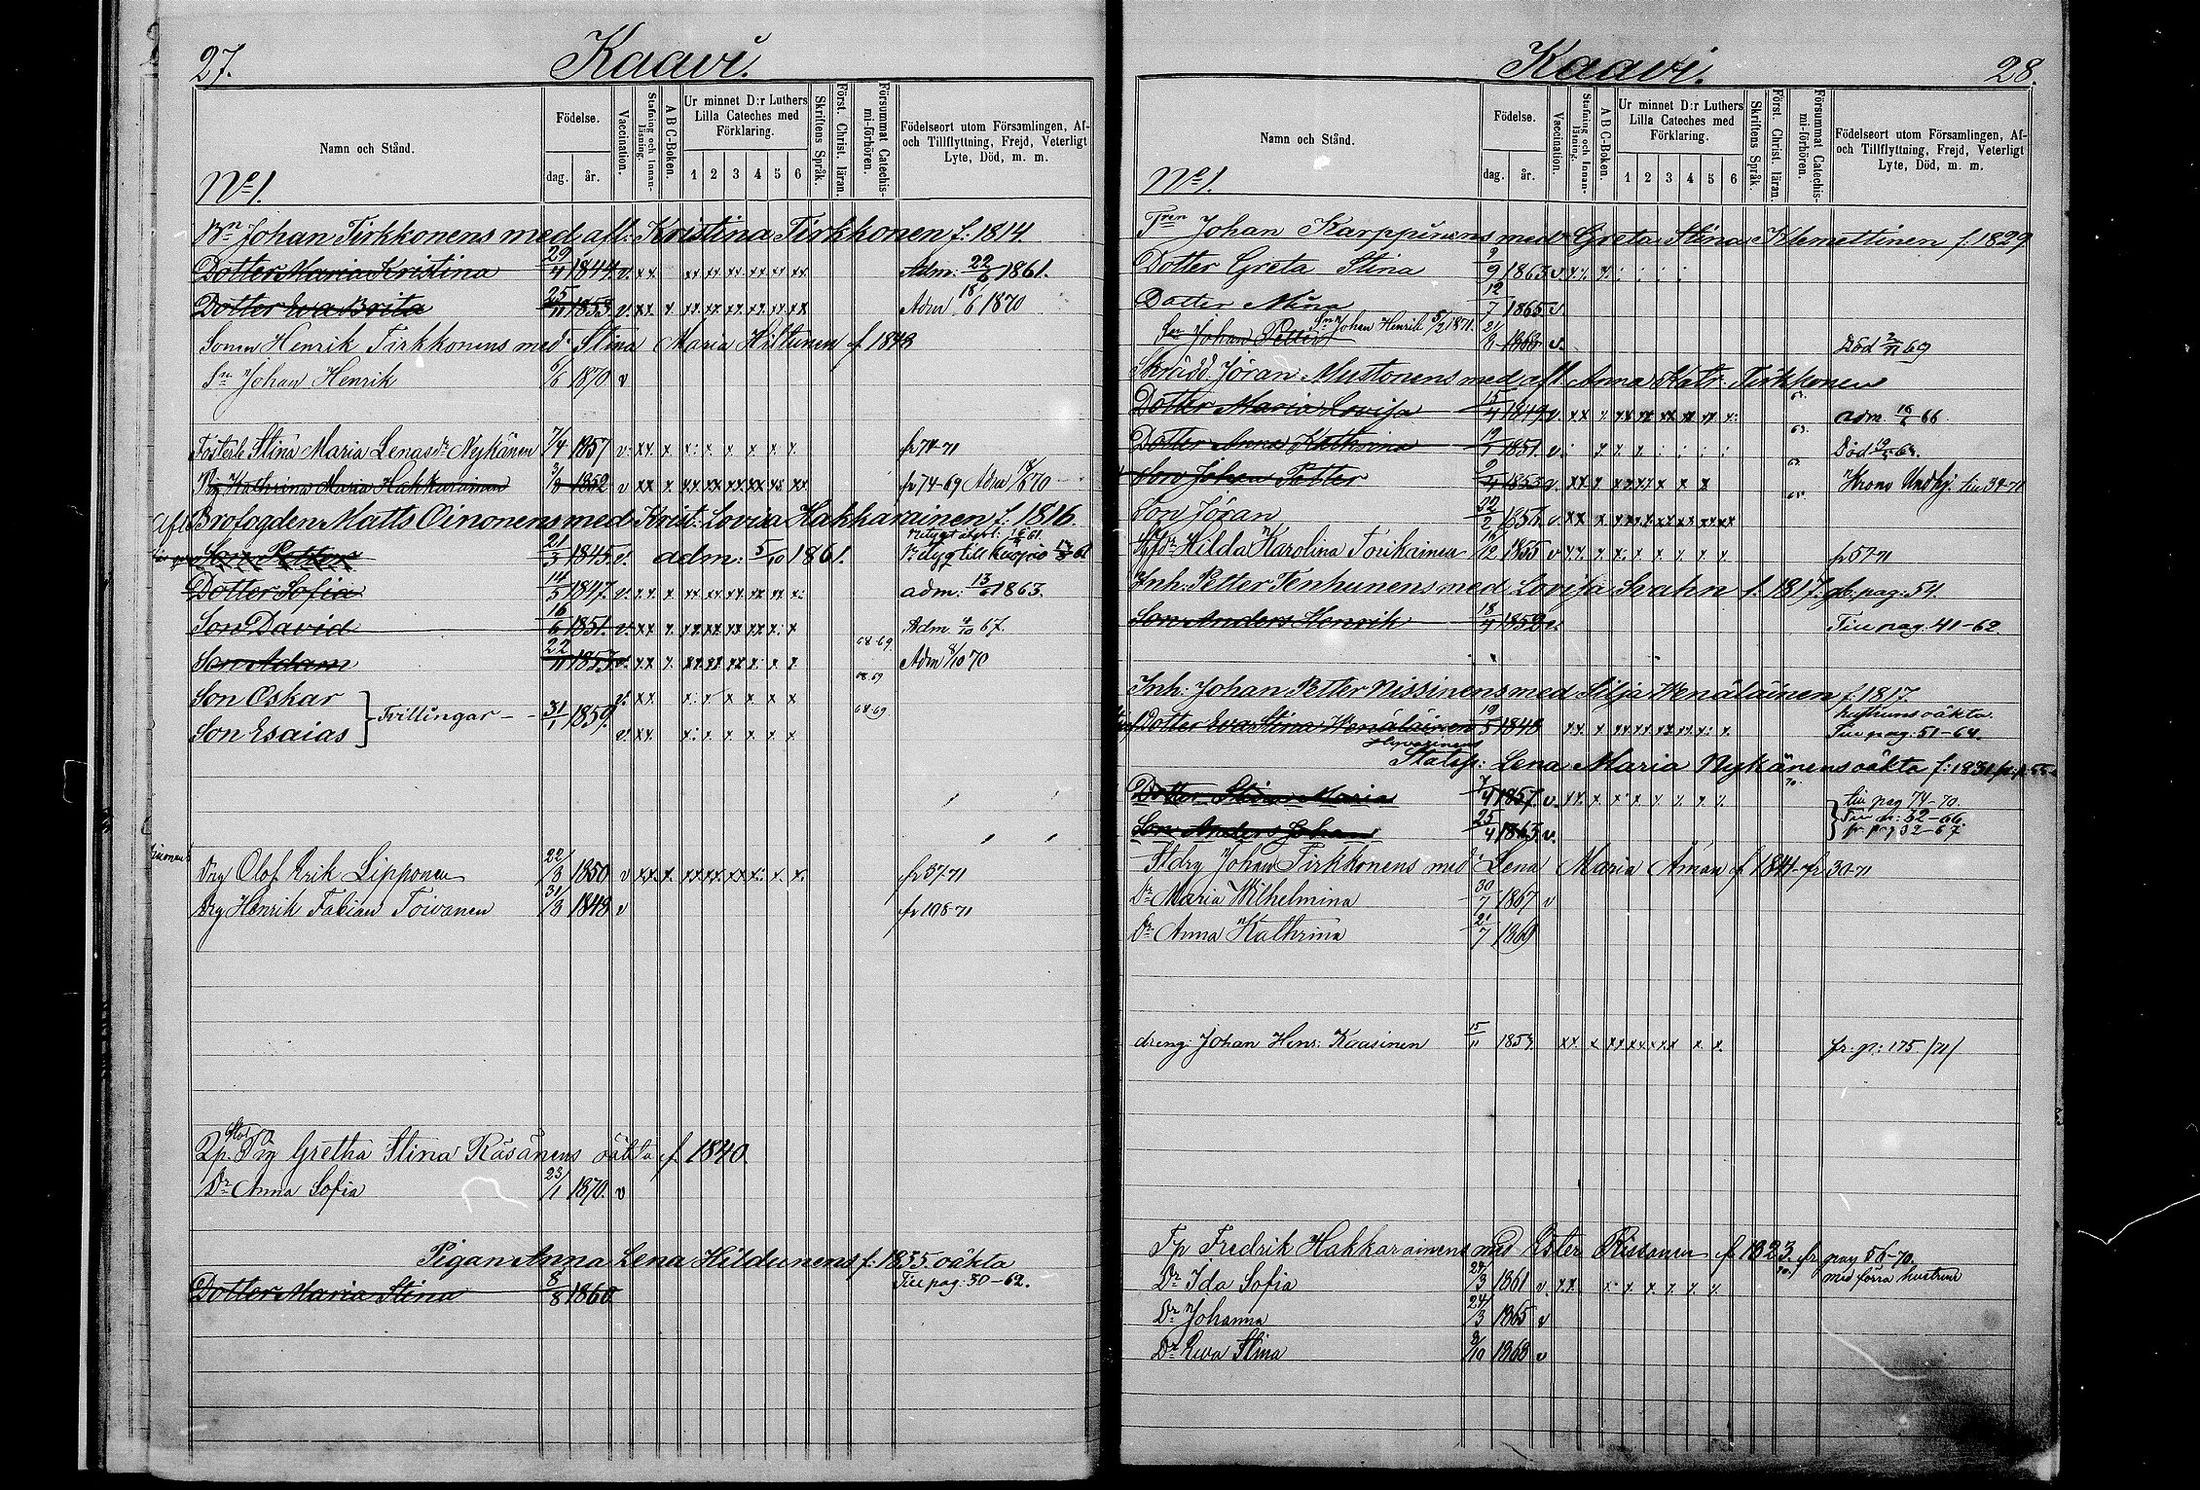 27.
Kaavi.
Namn och Stånd.
Födelse.
dag.
år.
Vaccination.
Stafning och Innan-läsning.
A B C-Boken.
Ur minnet D:r Luthers Lilla Cateches med Förklaring.
1 2 3 4 5 6
Skriftens Språk.
Först. Christ. läran.
Försummat Catechis-mi-förhören.
Födelseort utom Församlingen, Af- och Tillflyttning, Frejd, Veterligt Lyte, Död, m. m.
No 1.
Bn Johan Tirkkonens med afl: Kristina Tirkkonen f: 1814.
Dotter Maria Kristina 29/4 1844 v. Adm: 22/6 1861.
Dotter Eva Brita 25/11 1853 v. Adm 18/6 1870
Sonen Henrik Tirkkonens med Stina Maria Hiltunen f 1848
Sn Johan Henrik 6/6 1870 v
Stina Maria Lenasdr Nykänen 7/4 1857 v. fr 74-71
Pig Kathrina Maria Hakkarainen 3/3 1852 v fr 74-69 Adm 18/6 70
afl Brofogden Matts Oinonens med Krist: Lovisa Hakkarainen f: 1816
Son Petter 21/3 1845 v. adm: 5/10 1861.
Dotter Sofia 14/5 1847 v. adm: 13/6 1863.
Son David 16/6 1851 v. Adm 4/10 67.
Son Adam 22/11 1853 v. 68.69. Adm 8/10 70
Son Oskar v. 68.69
Tvillingar 31/1 1859.
Son Esaias v. 68.69.
Drg Olof Erik Lipponen 22/3 1850 v fr 57-71
Drg Henrik Fabian Toivanen 31/3 1848 v fr 108-71
Gretha Stina Räsänens oäkta f. 1840.
Dr Anna Sofia 23/1 1870. v
Pigan Anna Lena Hildunens f: 1835. oäkta
Dotter Maria Stina 8/8 1860 Till pag: 30-62.
Kaavi.
28.
Namn och Stånd.
Födelse.
dag.
år.
Vaccination.
Stafning och Innan-läsning.
A B C-Boken.
Ur minnet D:r Luthers Lilla Cateches med Förklaring.
1 2 3 4 5 6
Skriftens Språk.
Först. Christ. läran.
Försummat Catechis-mi-förhören.
Födelseort utom Församlingen, Af- och Tillflyttning, Frejd, Veterligt Lyte, Död, m. m.
No 1.
Johan Karppinens med Greta Stina Klemettinen f. 1829
Dotter Greta Stina 2/9 1863 v.
Dotter Mina 12/7 1865 v
Sn Johan Henrik 5/2 1871.
Sn Johan Petter 1868 v. Död 69
Skrädd. Jöran Mustonens med afl Anna Katr. Tirkkonen
Dotter Maria Lovisa 15/4 1849 v. adm. 66
Dotter Anna Kathrina 1851 v. Död
Son Johan Petter 1853 v.
Son Jöran 22/2 1856 v.
Hilda Karolina Torikainen 16/12 1855 v fr 57-71
Inh: Petter Tenhunens med Lovisa Svahn f. 1817. pag: 54.
Son Anders Henrik 18/4 1852 v. Till pag. 41-62.
Inh: Johan Petter Nissinens med Silja Venäläinen f. 1817.
hustruns oäkta.
Dotter Eva Stina Wenäläinen 19/5 1848 Till pag: 51-64.
Lena Maria Nykänens oäkta f: 1831
Dotter Stina Maria 7/4 1857. v. till pag 74-70.
Son Anders Johan 25/4 1863 v. Till 32-66 fr pag 32-67.
Johan Tirkkonens med Lena Maria Åman f 1841 fr 30-71
Dr Maria Wilhelmina 30/7 1867 v
Dr Anna Kathrina 21/7 1869
dreng Johan Henr: Kaasinen 15/11 fr. p: 175 /71/
Tp Fredrik Hakkarainens med Ester Rissanen f 1823. fr pag 56-70.
med förra hustrun
Dr Ida Sofia 1861 v.
Dr Johanna 24/3 1865 v
Dr Eeva Stina 1868 v